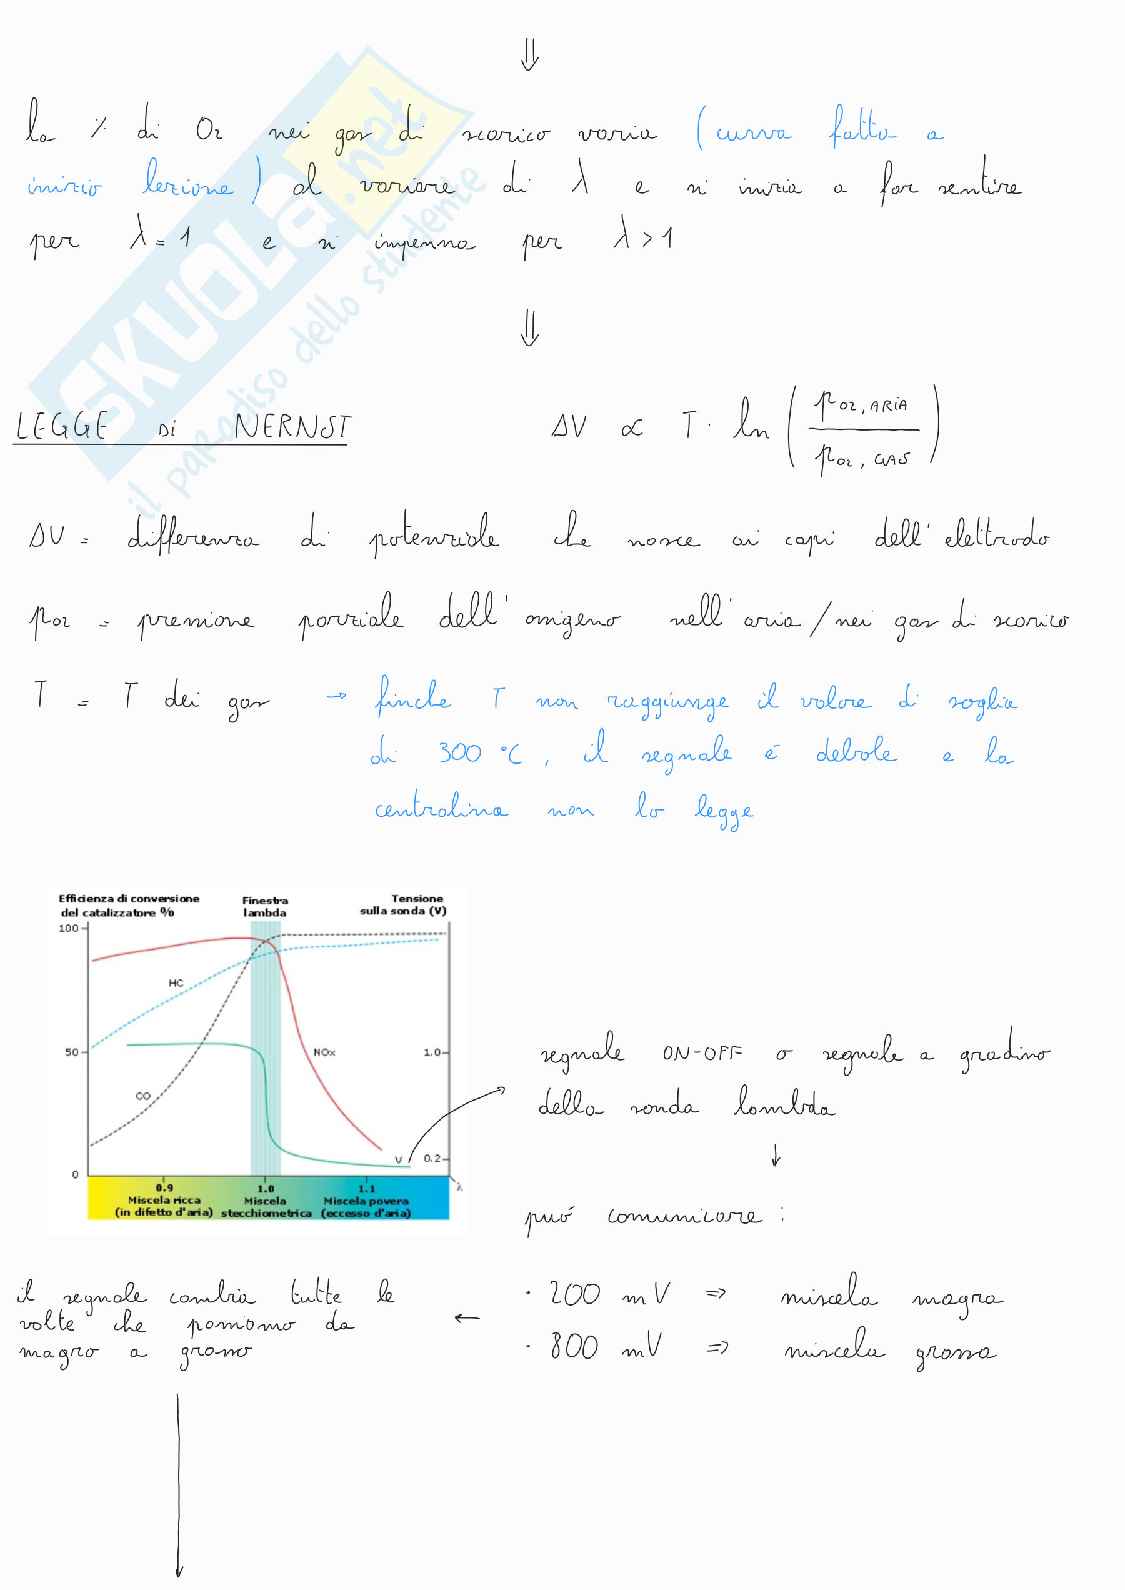 ⇓
la % di O2 nei gas di scarico varia (curva fatta a
inizio lezione) al variare di λ e si inizia a far sentire
per λ = 1 e si impenna per λ > 1
⇓
LEGGE di NERNST ΔV ∝ T · ln ( pO2, ARIA / pO2, GAS )
ΔV = differenza di potenziale che nasce ai capi dell'elettrodo
pO2 = pressione parziale dell'ossigeno nell'aria / nei gas di scarico
T = T dei gas → finche T non raggiunge il valore di soglia
di 300 °C, il segnale é debole e la
centralina non lo legge
Efficienza di conversione
del catalizzatore %
Finestra
lambda
Tensione
sulla sonda (V)
100
HC
50
NOx
1.0
CO
V
0.2
0
λ
0.9
1.0
1.1
Miscela ricca
(in difetto d'aria)
Miscela
stecchiometrica
Miscela povera
(eccesso d'aria)
segnale ON-OFF o segnale a gradino
della sonda lambda
↓
puó comunicare :
· 200 mV => miscela magra
· 800 mV => miscela grassa
←
il segnale cambia tutte le
volte che passiamo da
magro a grasso
SKUOLA.net
il paradiso dello studente